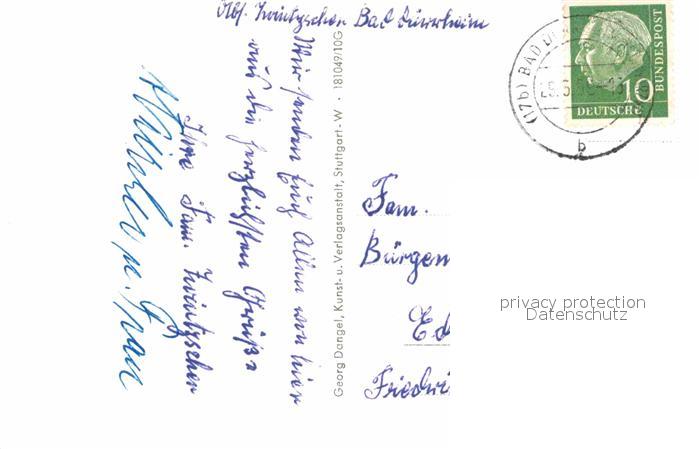 Abs. Zwintzscher Bad Dürrheim
Wir senden Euch Allen von hier
aus die herzlichsten Grüße
Ihre Fam. Zwintzscher
u. Frau
Georg Dangel, Kunst- u. Verlagsanstalt, Stuttgart-W · 181049/10G
(17b) BAD DÜ
b
10
DEUTSCHE
BUNDESPOST
Fam.
Bürgen
Ed
Friedri
privacy protection
Datenschutz